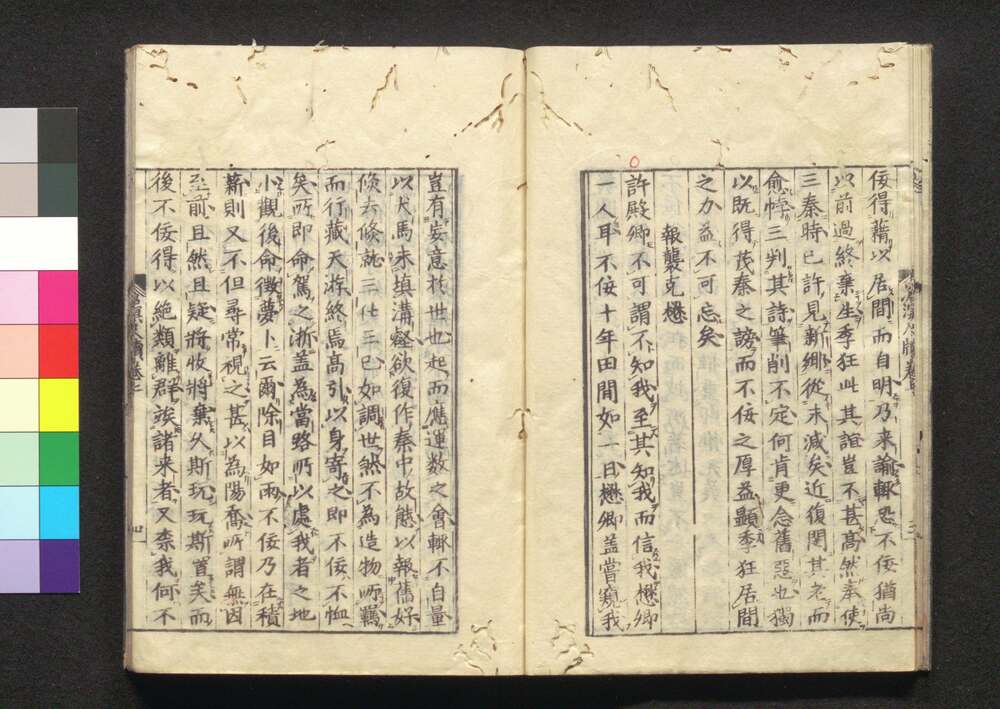 佞得藉以居間而自明乃来諭輒恐不佞猶尚
以前過終棄生季狂此其誼豈不甚髙然奉使
三秦時已許見新郷從末減矣近復閲其名而
愈悼三判其詩筆削不定何肯更念舊惡也獨
以既得茂秦之謗而不佞之厚益顯季狂居間
之力益不可忘矣
報龔克懋
許殿卿不可謂不知我至其知我而信我懋卿
一人耳不佞十年田間如一日懋卿盖嘗窺我
豈有妄意於世也起而應運数之會輒不自量
以犬馬未填溝壑欲復作秦中故態以報舊好
倏去倏就三仕三已如調世然不為造物所羈
而行藏天游終焉髙引以身寄之即不佞不恤
矣所即命駕之浙盖為當路所以處我者之地
小觀後命徴夢卜云爾除目如雨不佞乃在積
薪則又不但尋常視之甚以為陽喬所謂無因
至前且然且疑将收将棄久斯玩玩斯置矣而
後不佞得以絶類離群誒諸来者又柰我何不